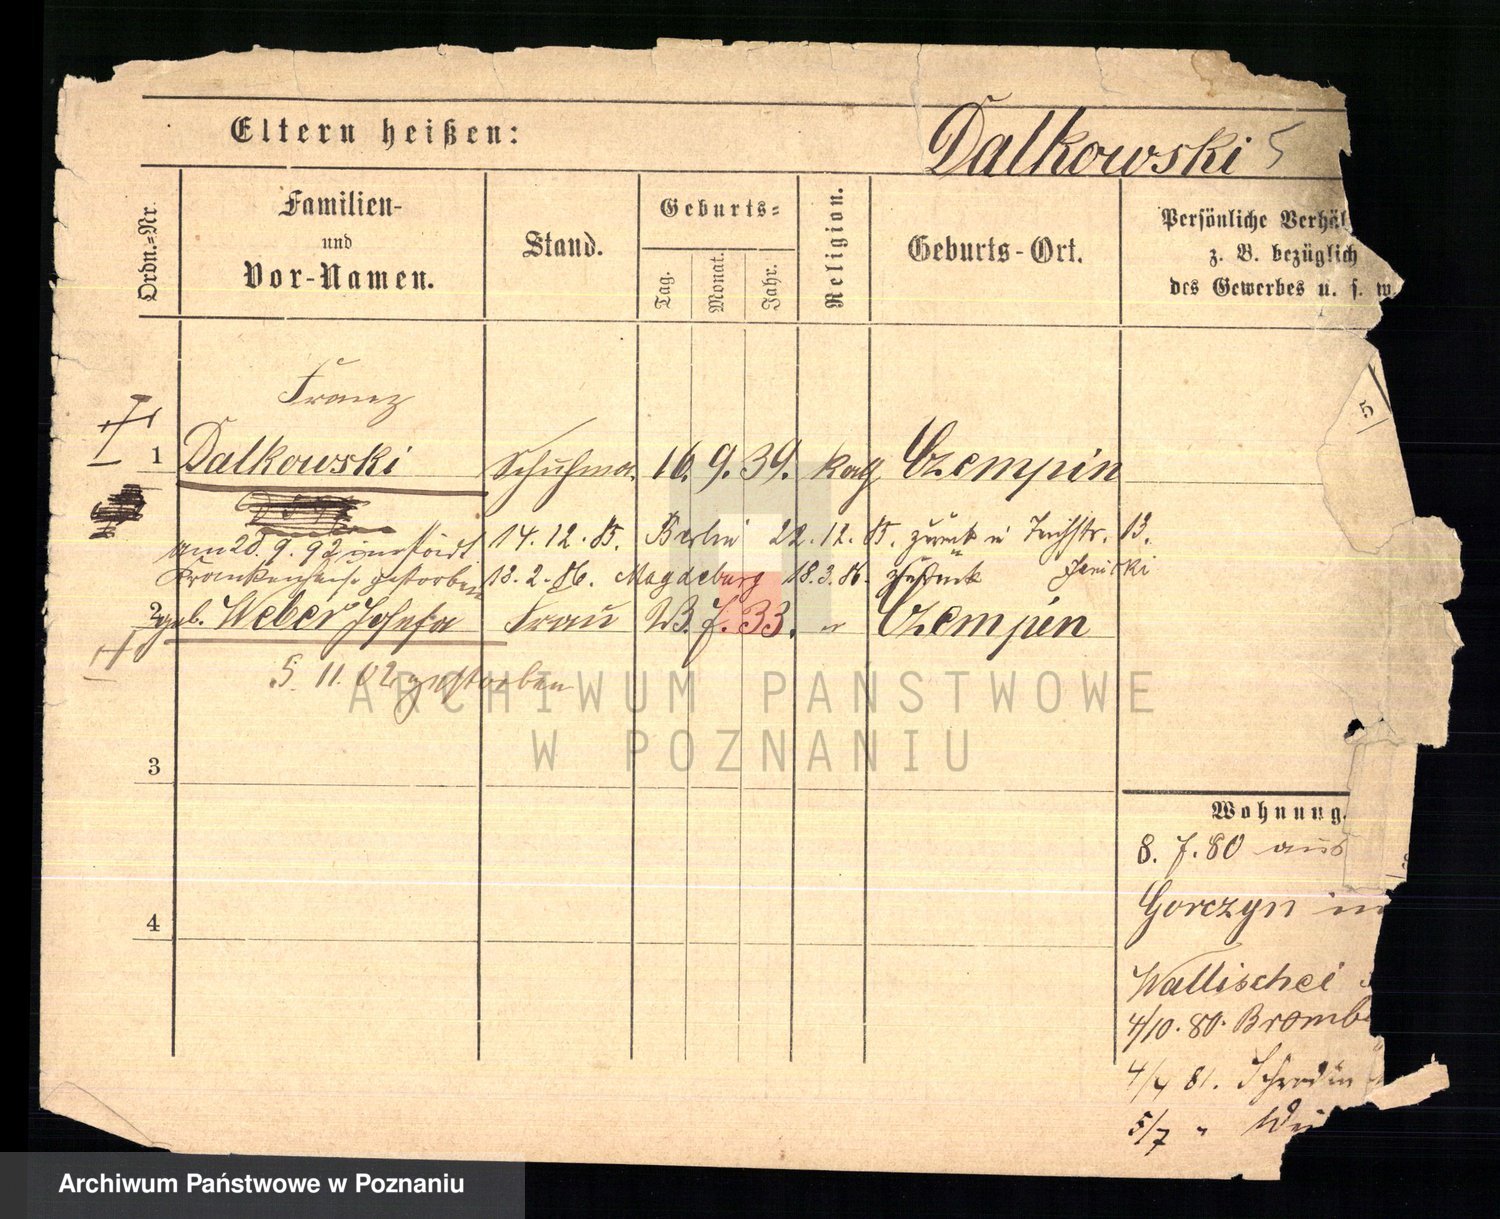 Eltern heißen:
Dalkowski
Ordn.=Nr.
Familien-
und
Vor-Namen.
Stand.
Geburts=
Tag.
Monat.
Jahr.
Religion.
Geburts-Ort.
Persönliche Verhäl
z. B. bezüglich
des Gewerbes u. s. w.
5
Franz
1 Dalkowski Schuhma. 16. 9. 39. kath Czempin
am 20. 9. 92 im Stadt
Krankenhause gestorben
14. 12. 85. Berlin 22. 12. 85. zurück 13.
18. 2. 86. Magdeburg 18. 3. 86. zurück
2 geb. Weber Josefa Frau 13. 7. 33. Czempin
5. 11. 02 gestorben
3
4
Wohnung.
8. 7. 80 aus
Gorczyn in
Wallischei
4/10. 80. Bromb
4/4 81. Schrodn
5/7 " Wei
ARCHIWUM PAŃSTWOWE
W POZNANIU
Archiwum Państwowe w Poznaniu